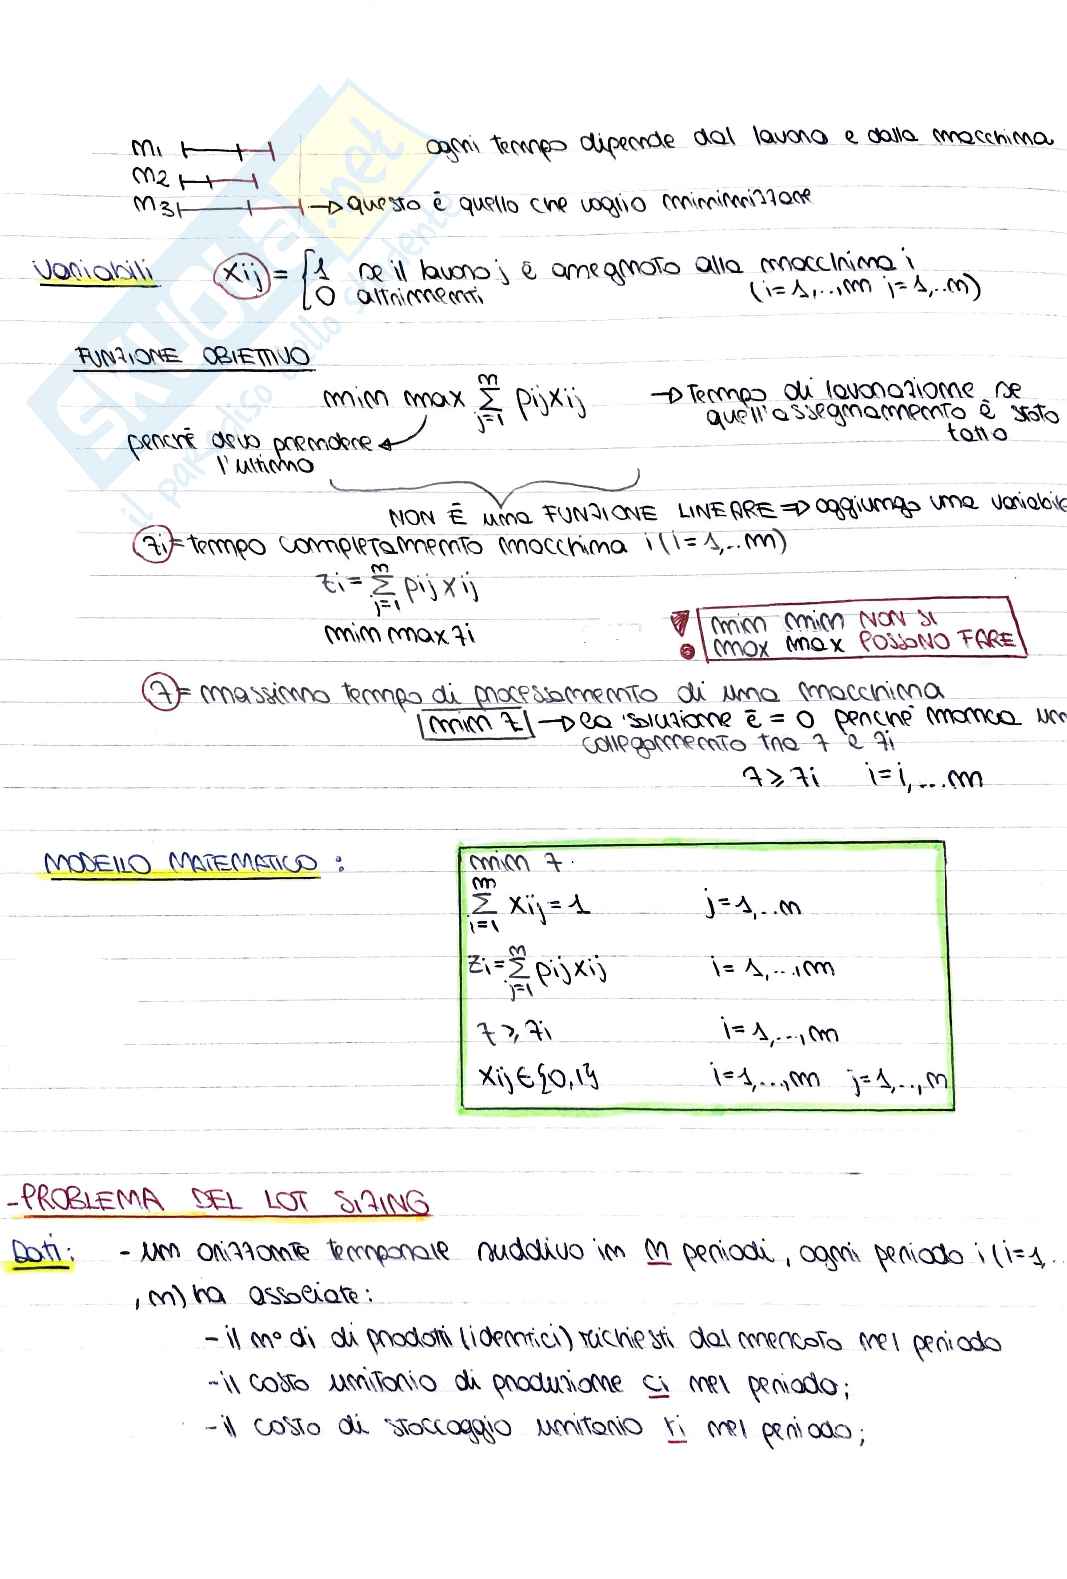 m1 ogni tempo dipende dal lavoro e dalla macchina
m2
m3 → questo è quello che voglio minimizzare
Variabili xij = { 1 se il lavoro j è assegnato alla macchina i
0 altrimenti (i=1,..,m j=1,..n)
FUNZIONE OBIETTIVO
min max Σ j=1 n pijxij → tempo di lavorazione se
quell'assegnamento è stato
fatto
perché devo prendere
l'ultimo
NON È una FUNZIONE LINEARE ⇒ aggiungo una variabile
zi = tempo completamento macchina i (i=1,..m)
zi = Σ j=1 n pijxij
min max zi
! min min NON SI
max max POSSONO FARE
z = massimo tempo di processamento di una macchina
min z → la soluzione è = 0 perché manca un
collegamento tra z e zi
z ≥ zi i=i,...m
MODELLO MATEMATICO:
min z
Σ i=1 m xij = 1 j=1,..n
zi = Σ j=1 n pijxij i=1,...,m
z ≥ zi i=1,...,m
xij ∈ {0,1} i=1,...,m j=1,..,n
- PROBLEMA DEL LOT SIZING
Dati: - un orizzonte temporale suddivo in n periodi, ogni periodo i (i=1,..
,n) ha associate:
- il n° di di prodotti (identici) richiesti dal mercato nel periodo
- il costo unitario di produzione ci nel periodo;
- il costo di stoccaggio unitario ri nel periodo;
SKUOLA.net
il paradiso dello studente